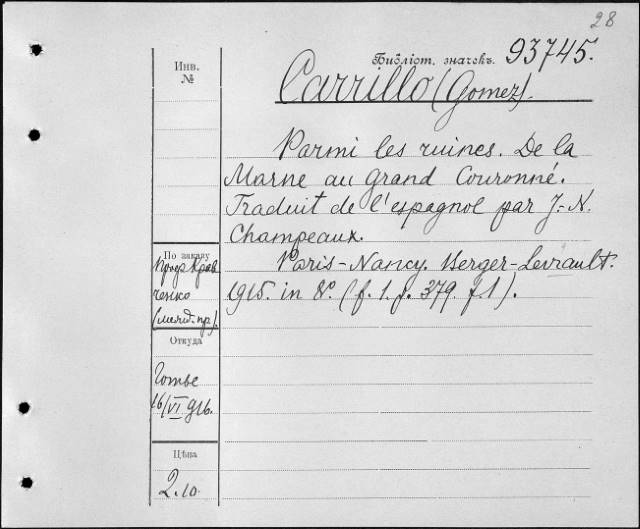 28
Инв.
№
Библіот. значекъ. 93745.
Carrillo (Gomez).
Parmi les ruines. De la
Marne au Grand Couronné.
Traduit de l'espagnol par J.-N.
Champeaux.
Paris-Nancy. Berger-Levrault.
1915. in 8°. (f. 1. p. 379. f. 1).
По заказу
Проф. Крав
ченко
Откуда
Готье
16/VI 916.
Цѣна
2.10